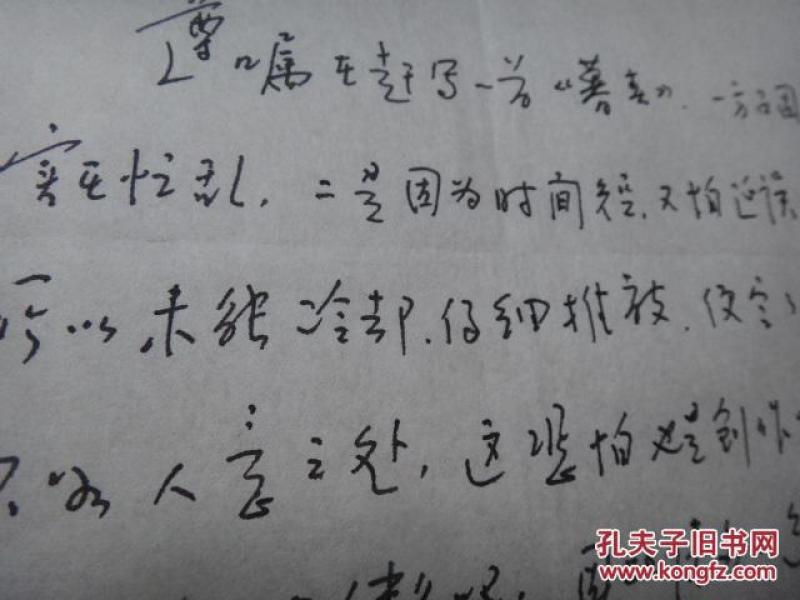 遵嘱在赶写一首《善哉》,一方面
实在忙乱,二是因为时间短,又怕延误
所以未能冷却,仔细推敲,使会
不如人意之处,这恐怕也是创作
孔夫子旧书网
www.kongfz.com